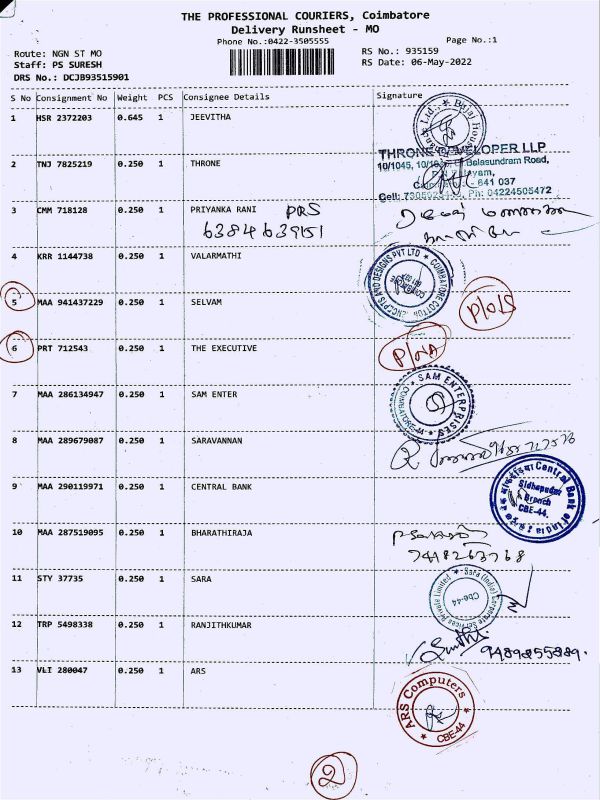 THE PROFESSIONAL COURIERS, Coimbatore
Delivery Runsheet - MO
Phone No.:0422-3505555
Page No.:1
Route: NGN ST MO
RS No.: 935159
Staff: PS SURESH
RS Date: 06-May-2022
DRS No.: DCJB93515901
S No Consignment No Weight PCS Consignee Details Signature
1 HSR 2372203 0.645 1 JEEVITHA
2 TNJ 7825219 0.250 1 THRONE
THRONE DEVELOPER LLP
Balasundram Road,
641 037
Cell: Ph: 04224505472
3 CMM 718128 0.250 1 PRIYANKA RANI PRS
6384639151
4 KRR 1144738 0.250 1 VALARMATHI
CONCEPTS AND DESIGNS PVT LTD * COIMBATORE
5 MAA 941437229 0.250 1 SELVAM P/O/S
6 PRT 712543 0.250 1 THE EXECUTIVE P/NA
7 MAA 286134947 0.250 1 SAM ENTER
SAM ENTERPRISES
COIMBATORE-44
8 MAA 289679087 0.250 1 SARAVANNAN
9 MAA 290119971 0.250 1 CENTRAL BANK
Central Bank of India
Sidhapudur
Branch
CBE-44.
10 MAA 287519095 0.250 1 BHARATHIRAJA
7418263768
11 STY 37735 0.250 1 SARA
Sara (India) Corporate Services Private Limited
Cbe-44
12 TRP 5498338 0.250 1 RANJITHKUMAR
9489255889.
13 VLI 280047 0.250 1 ARS
ARS Computers
CBE-44
2